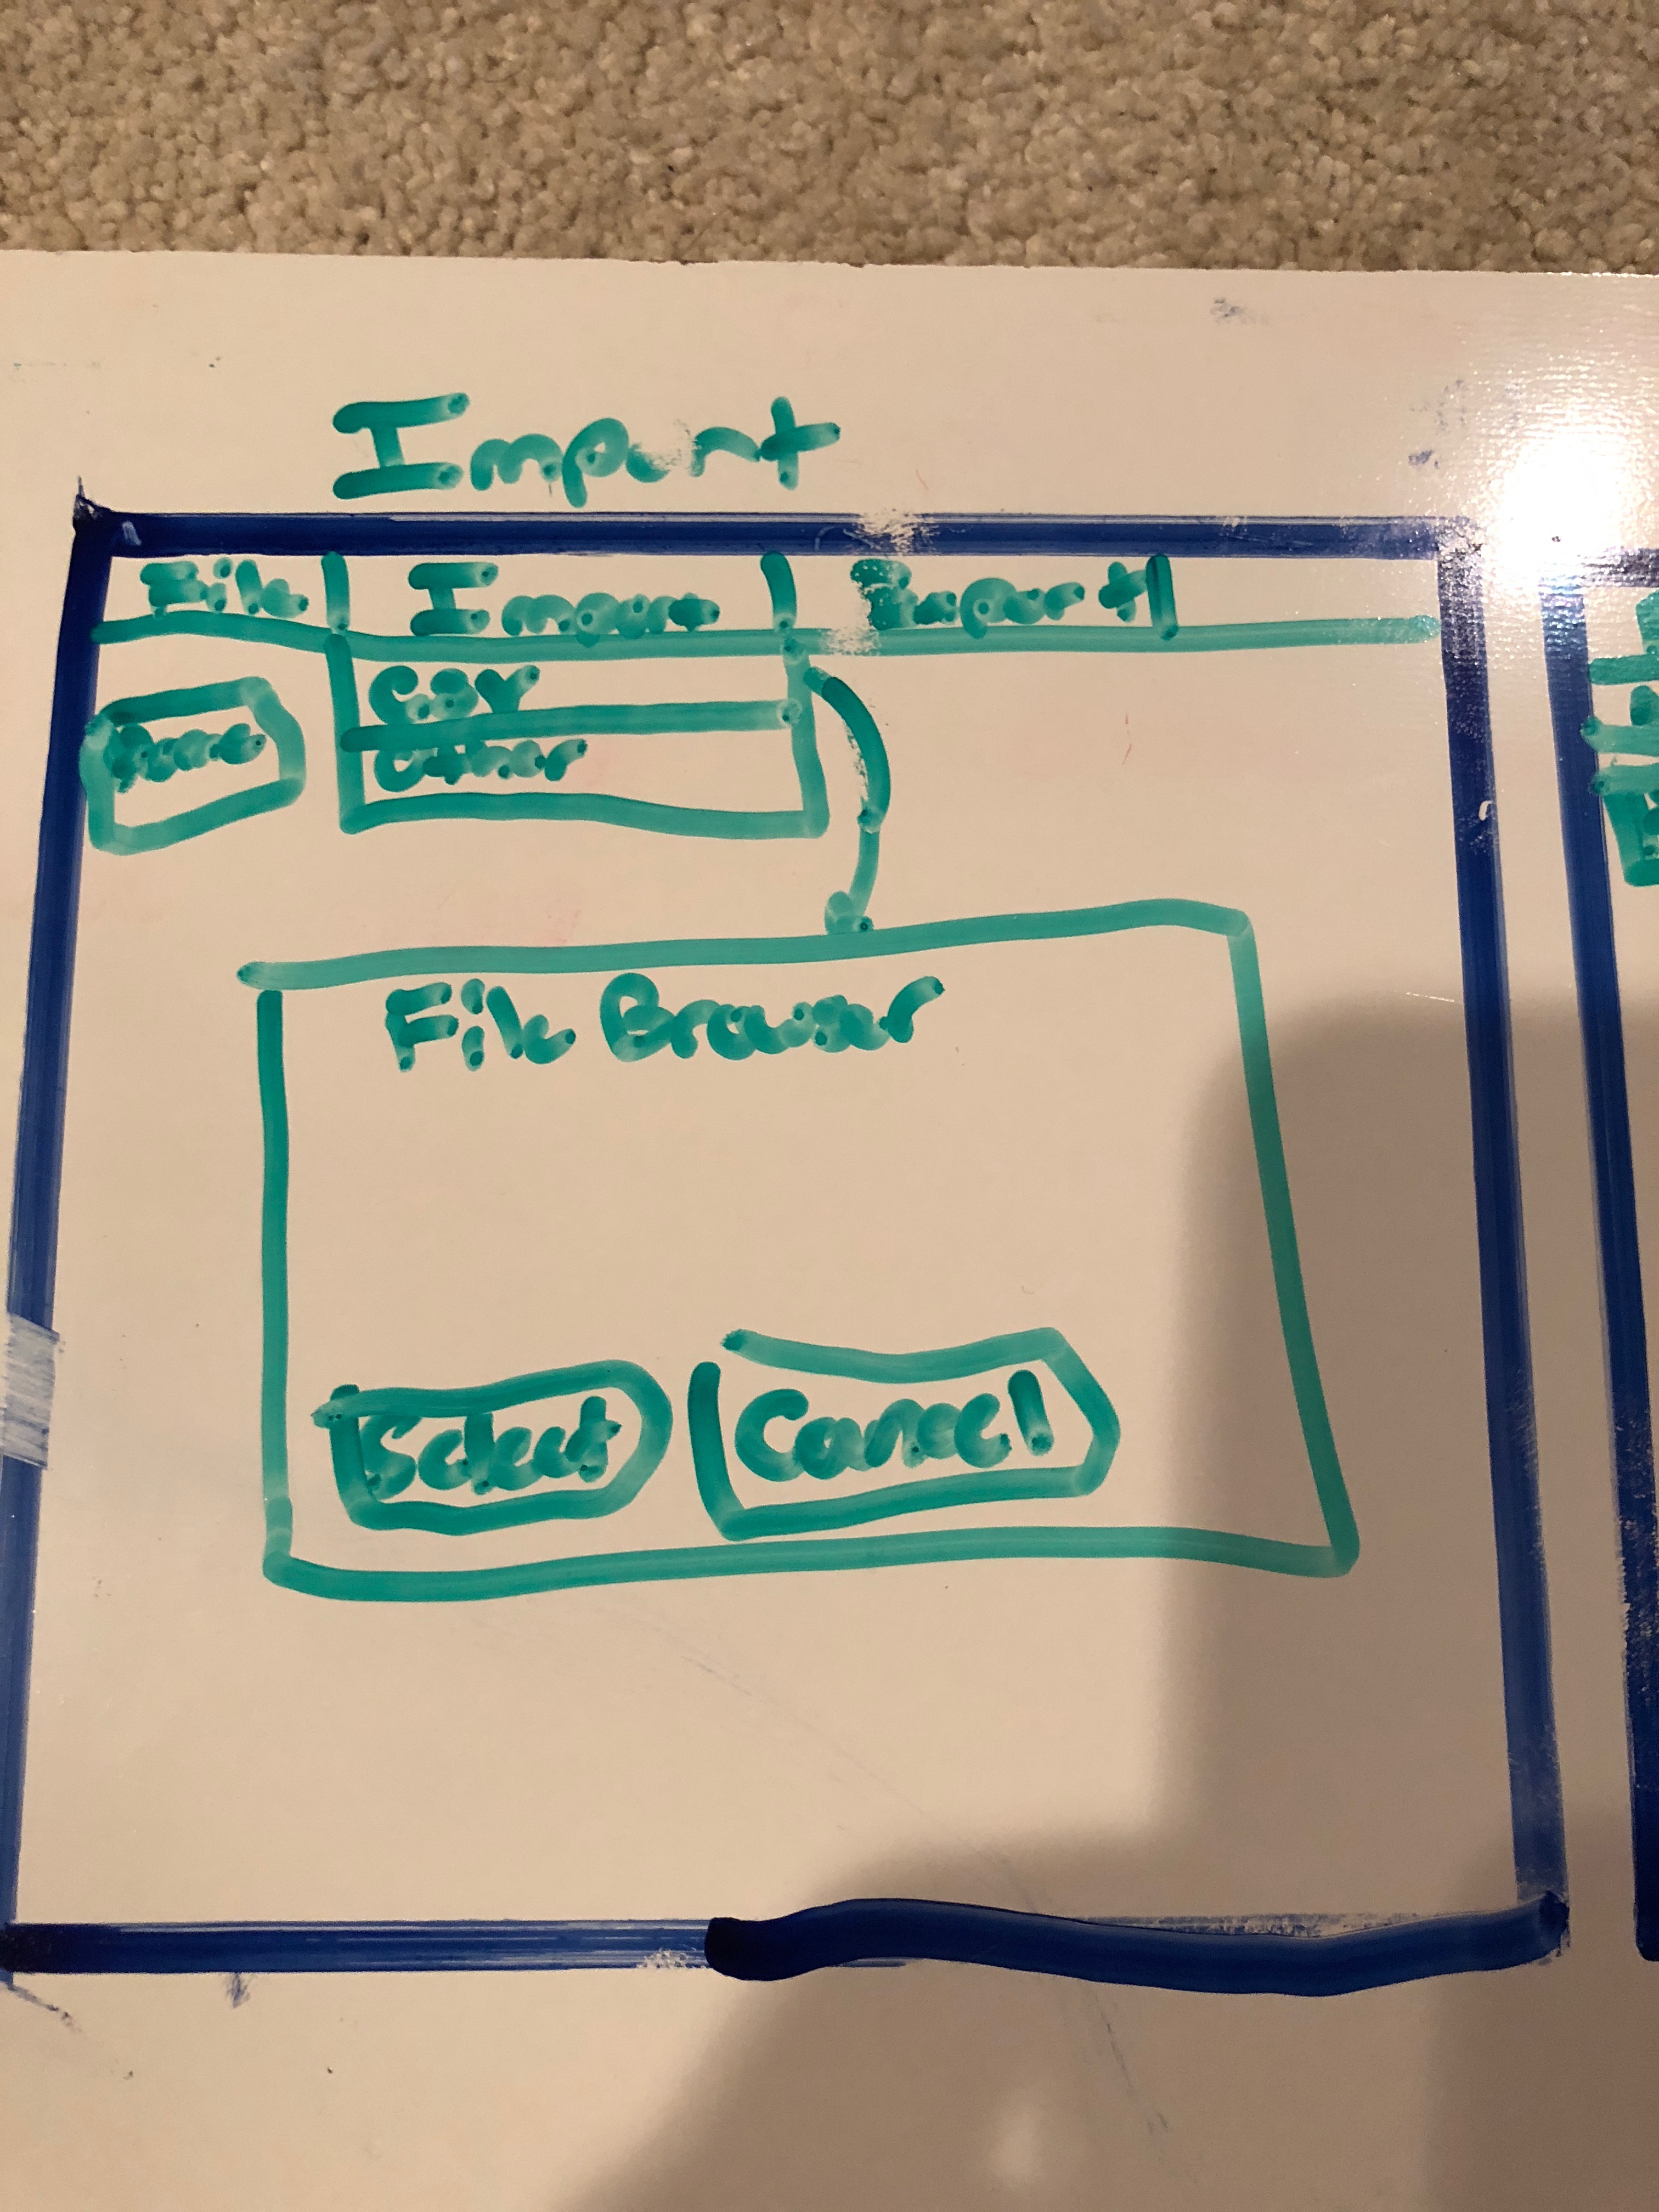 Import
File Import Export
CSV
Other
File Browser
Select Cancel